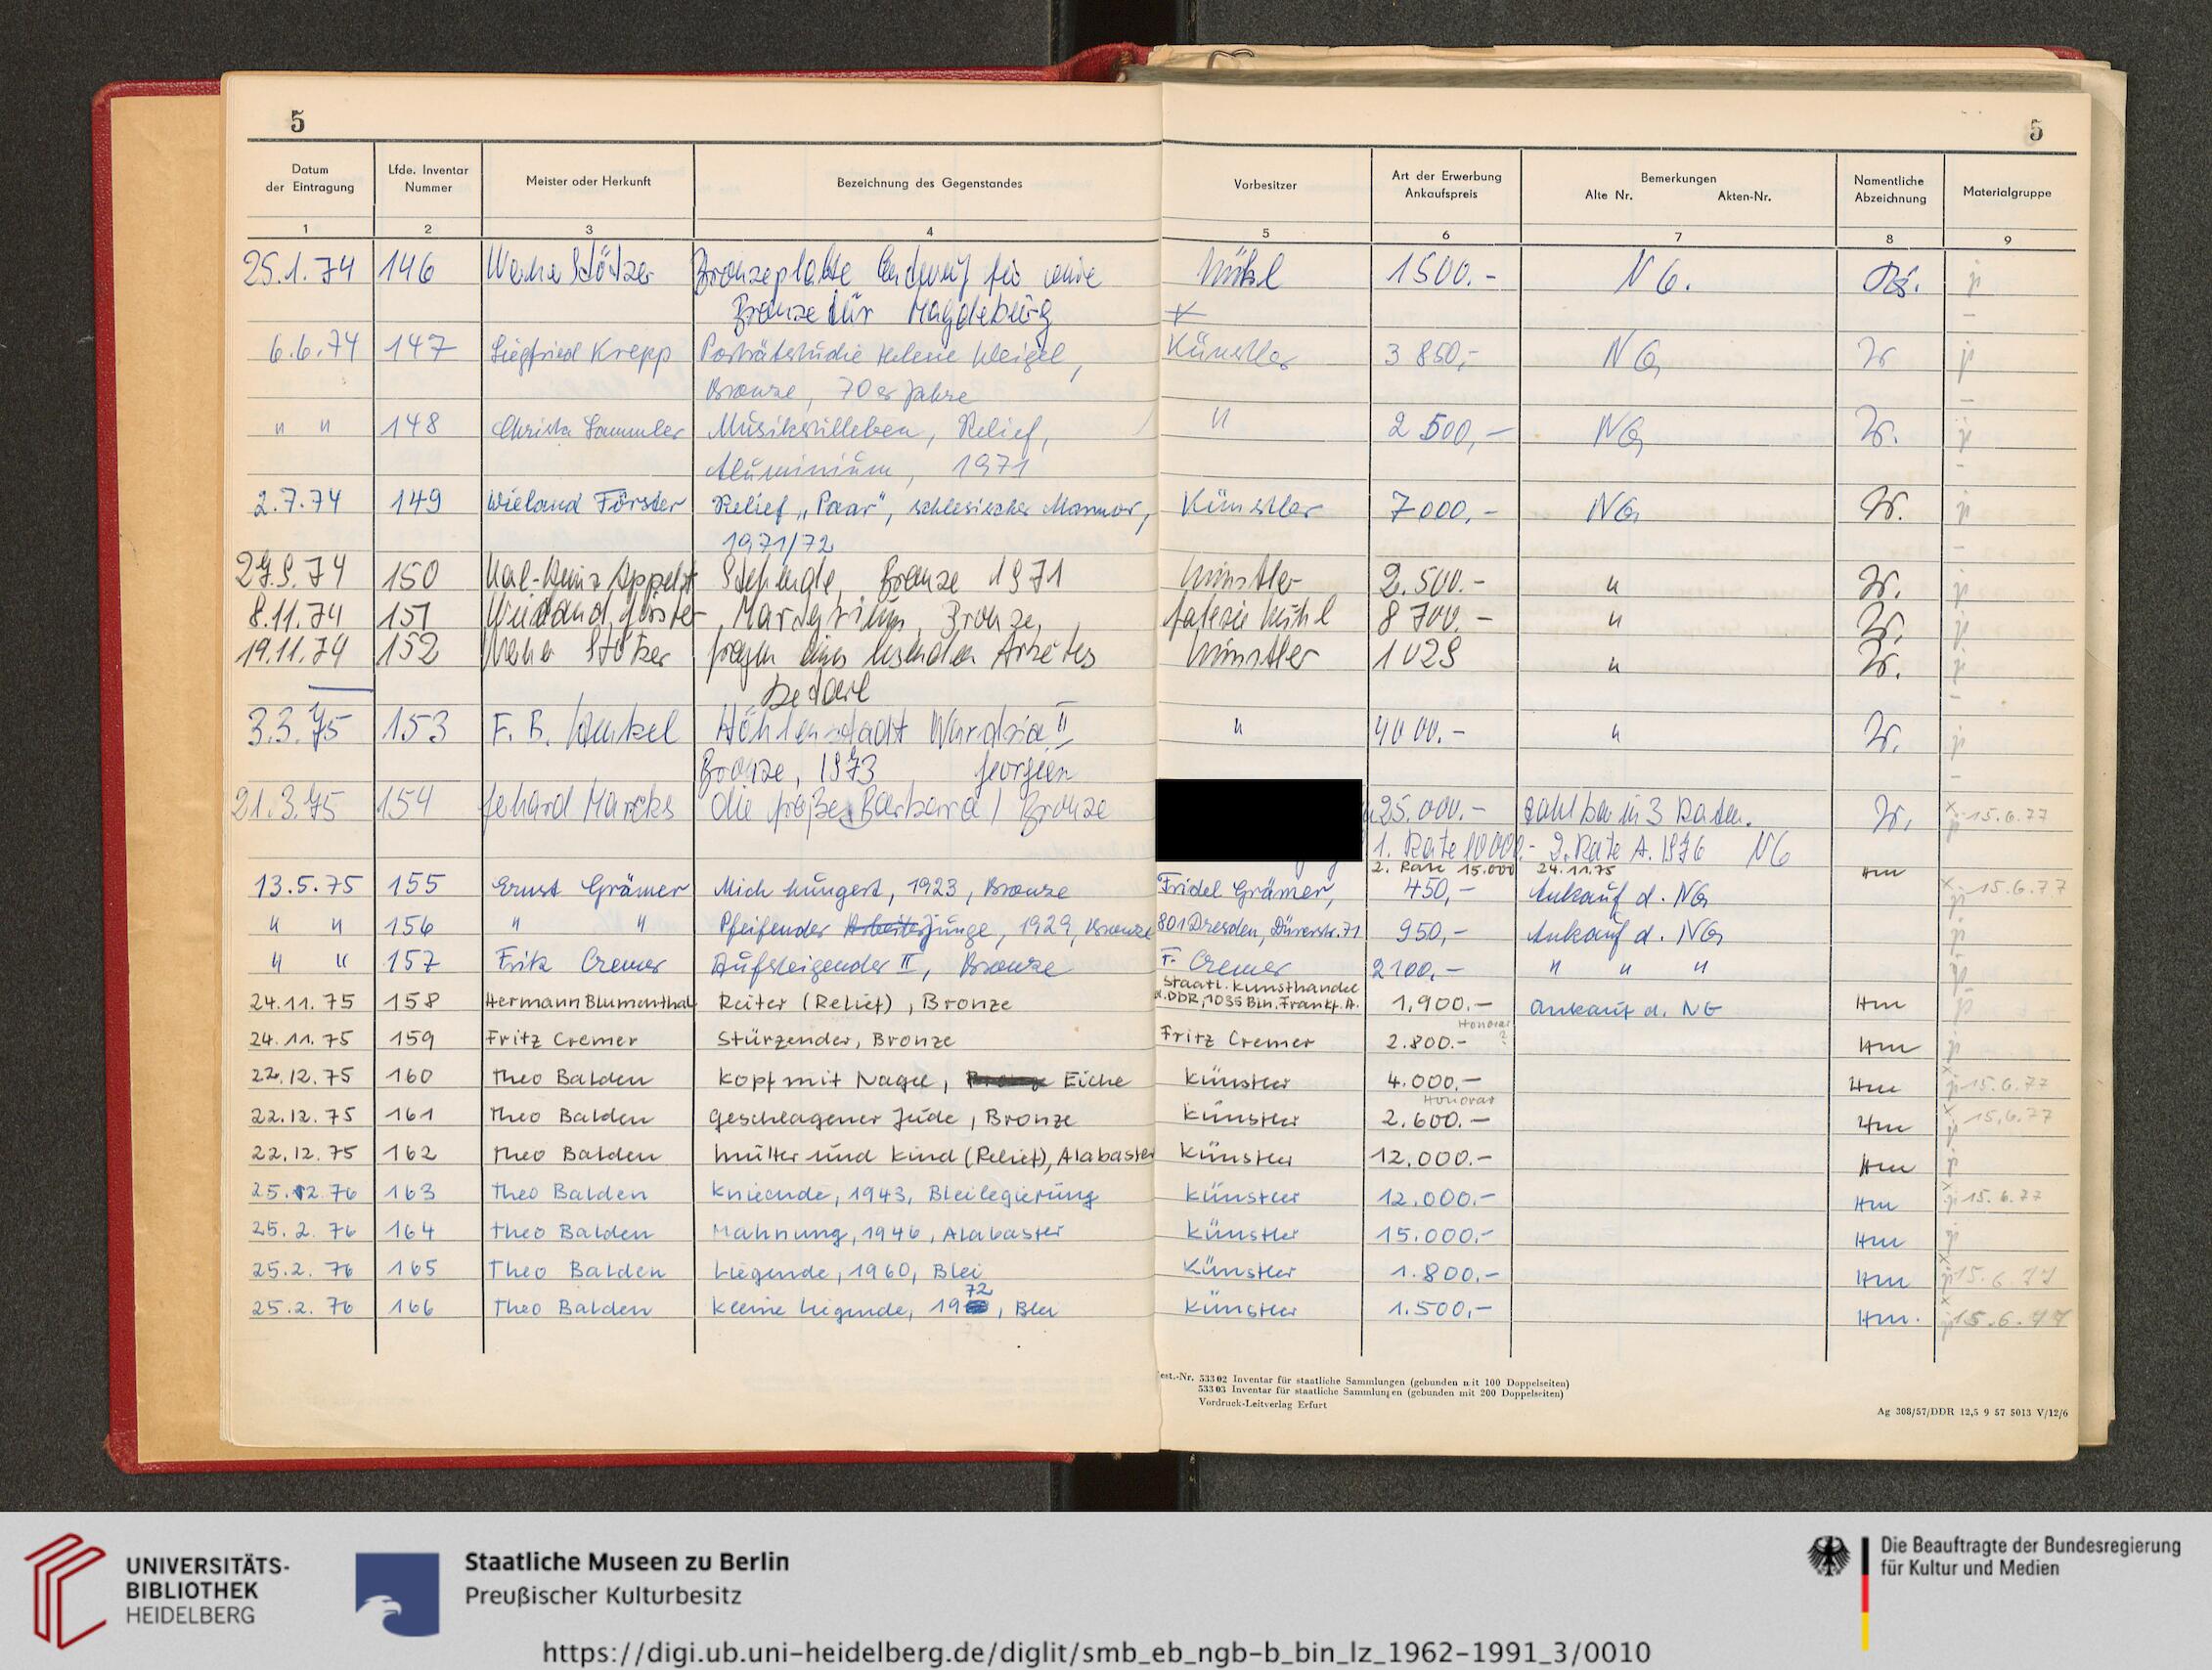 5 5
Datum der Eintragung Lfde. Inventar Nummer Meister oder Herkunft Bezeichnung des Gegenstandes Vorbesitzer Art der Erwerbung Ankaufspreis Bemerkungen Alte Nr. Akten-Nr. Namentliche Abzeichnung Materialgruppe
1 2 3 4 5 6 7 8 9
25.1.74 146 Werner Stötzer Bronzeplatte Entwurf für eine Kühl 1500.- NG.
Bronzetür Magdeburg
6.6.74 147 Siegfried Krepp Porträtstudie Helene Weigel, Künstler 3 850,- NG
Bronze, 70er Jahre
" " 148 Christa Sammler Musikstilleben, Relief, " 2 500,- NG
Aluminium, 1971
2.7.74 149 Wieland Förster Relief „Paar", schlesischer Marmor, Künstler 7000,- NG
1971/72
150 Stehende, Bronze 1971 Künstler 2.500.- "
8.11.74 151 Wieland Förster Martyrium, Bronze, Galerie Kühl 8 700.- "
19.11.74 152 Werner Stötzer Fragm. eines lesenden Arbeiters Künstler "
3.3.75 153 F. B. Henkel Höhlenstadt Wardsia II " 4000.- "
Bronze, 1973 Georgien
21.3.75 154 Gerhard Marcks die große Barbara / Bronze 25.000.- zahlbar in 3 Raten. x 15.6.77
1. Rate 10 000.- 2. Rate A. 1976 NG
2. Rate 15.000 24.11.75 Hm
13.5.75 155 Ernst Grämer Mich hungert, 1923, Bronze Fridel Grämer, 450,- Ankauf d. NG x 15.6.77
" " 156 " " Pfeifender Arbeiterjunge, 1929, Bronze 801 Dresden, Dürerstr. 71 950,- Ankauf d. NG
" " 157 Fritz Cremer Aufsteigender II, Bronze F. Cremer 2100,- " " "
Staatl. Kunsthandel
24.11.75 158 Hermann Blumenthal Reiter (Relief), Bronze d. DDR, 1035 Bln. Frankf. A. 1.900.- Ankauf d. NG Hm
Honorar ?
24.11.75 159 Fritz Cremer Stürzender, Bronze Fritz Cremer 2.800.- Hm
22.12.75 160 Theo Balden Kopf mit Nagel, Bronze Eiche Künstler 4.000.- Hm x 15.6.77
Honorar
22.12.75 161 Theo Balden Geschlagener Jude, Bronze Künstler 2.600.- Hm x 15.6.77
22.12.75 162 Theo Balden Mutter und Kind (Relief), Alabaster Künstler 12.000.- Hm
25.2.76 163 Theo Balden Kniende, 1943, Bleilegierung Künstler 12.000.- Hm x 15.6.77
25.2.76 164 Theo Balden Mahnung, 1946, Alabaster Künstler 15.000.- Hm
25.2.76 165 Theo Balden Liegende, 1960, Blei Künstler 1.800,- Hm x 15.6.77
72
25.2.76 166 Theo Balden Kleine Liegende, 19 , Blei Künstler 1.500,- Hm. x 15.6.77
est.-Nr. 53302 Inventar für staatliche Sammlungen (gebunden mit 100 Doppelseiten)
53303 Inventar für staatliche Sammlungen (gebunden mit 200 Doppelseiten)
Vordruck-Leitverlag Erfurt
Ag 308/57/DDR 12,5 9 57 5013 V/12/6
UNIVERSITÄTS-
BIBLIOTHEK
HEIDELBERG
Staatliche Museen zu Berlin
Preußischer Kulturbesitz
Die Beauftragte der Bundesregierung
für Kultur und Medien
https://digi.ub.uni-heidelberg.de/diglit/smb_eb_ngb-b_bin_lz_1962-1991_3/0010